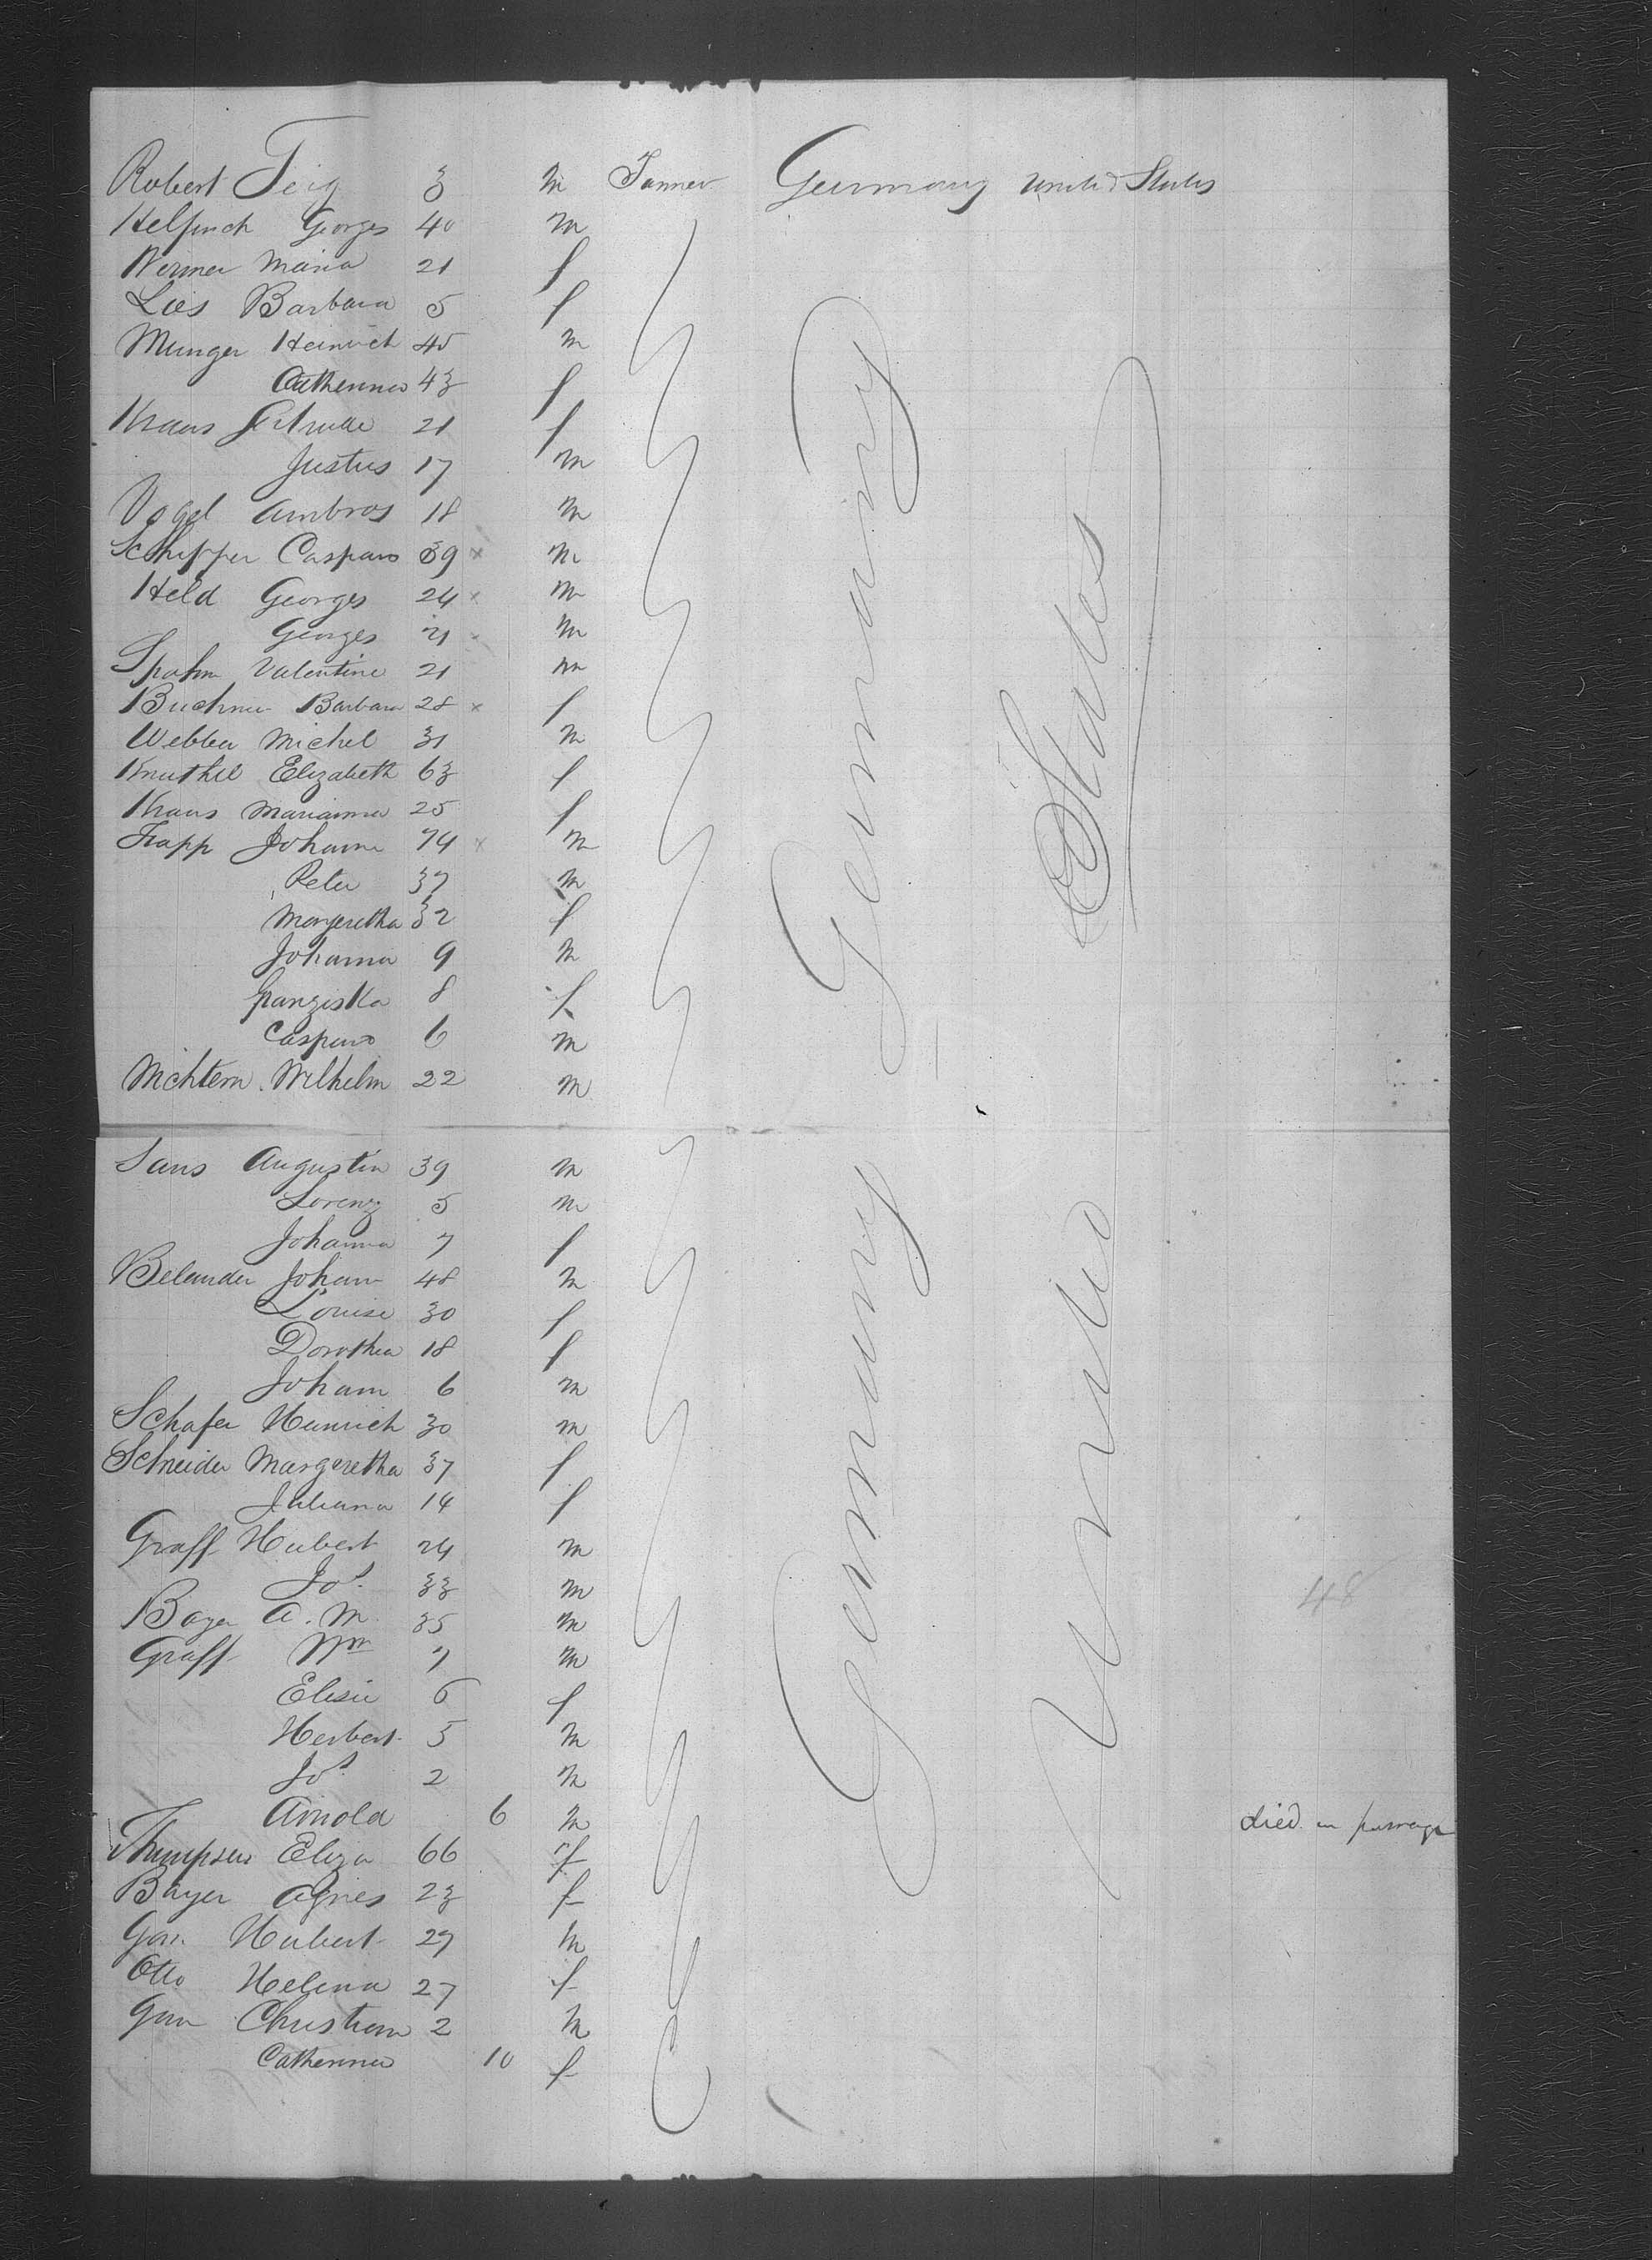 Robert Feig 3 m Farmer Germany United States
Helfinch Georges 40 m
Werner Maria 21 f
Lais Barbara 5 f
Munger Heinrich 45 m
Catherina 43 f
Kraus 21 f
Justus 17 m
Vogel Ambros 18 m
Schipper Caspar 39 x m
Held Georges 24 x m
Georges 21 m
Spahn Valentine 21 m
Buchner Barbara 28 x f
Webber Michel 31 m
Knuthel Elizabeth 63 f
Kraus Marianna 25 f
Trapp Johann 74 x m
Peter 37 m
Margeretha 32 f
Johanna 9 m
Franziska 8 f
Caspar 6 m
Wilhelm 22 m
Sans Augustin 39 m
Lorenz 5 m
Johanna 7 f
Belander Johann 48 m
Louise 30 f
Dorothea 18 f
Johann 6 m
Schafer Heinrich 30 m
Schneider Margeretha 37 f
Juliana 14 f
Graff Hubert 24 m
Jos. 33 m
Bayer A. M. 35 m
Graff Wm 7 m
Elisie 6 f
Herbert 5 m
Jos. 2 m
Arnold 6 m died on passage
Thumpsen Eliza 66 f
Bayer Agnes 23 f
Hubert 27 m
Otto Helena 27 f
Christian 2 m
Catherina 10 f
Germany Germany
United States
48